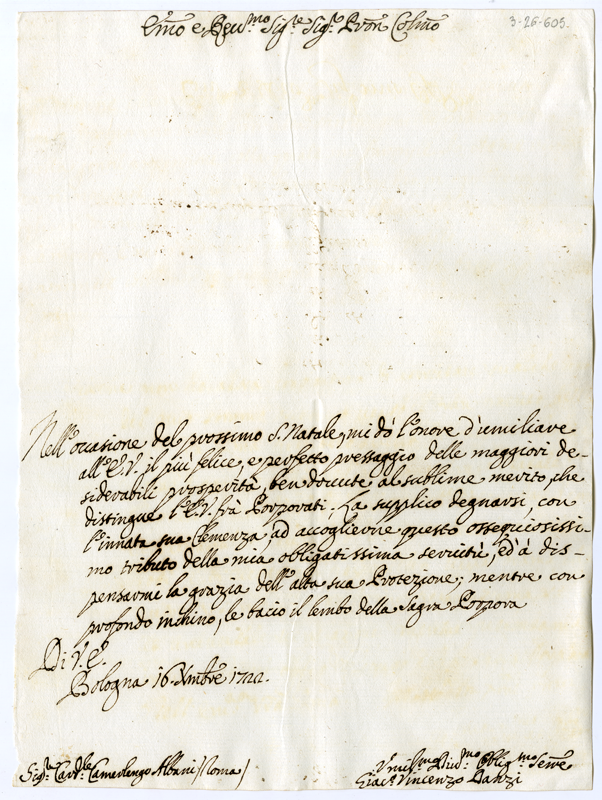 Em̃o e Reu.mo Sig.re Sig.r Pron Colmo
3-26-603.
Nell'occasione del prossimo S. Natale, mi dò l'onore d'umiliare
all'E.V. il più felice, e perfetto pressaggio delle maggiori de-
siderabili prosperità, ben dovute al sublime merito, che
distingue l'E.V. fra Porporati. La supplico degnarsi, con
l'innata sua Clemenza, ad accogliervi questo ossequiosissi-
mo tributo della mia obligatissima servitù, ed à dis-
pensarmi la grazia dell'alta sua Protezione; mentre con
profondo inchino, le bacio il lembo della Sagra Porpora
Di V.E.
Bologna 16 Xmbre 1722.
Sig.r Card.le Camerlengo Albani /Roma/
Vmil.mo Diu.mo Oblig.mo Serre
Giac.o Vincenzo